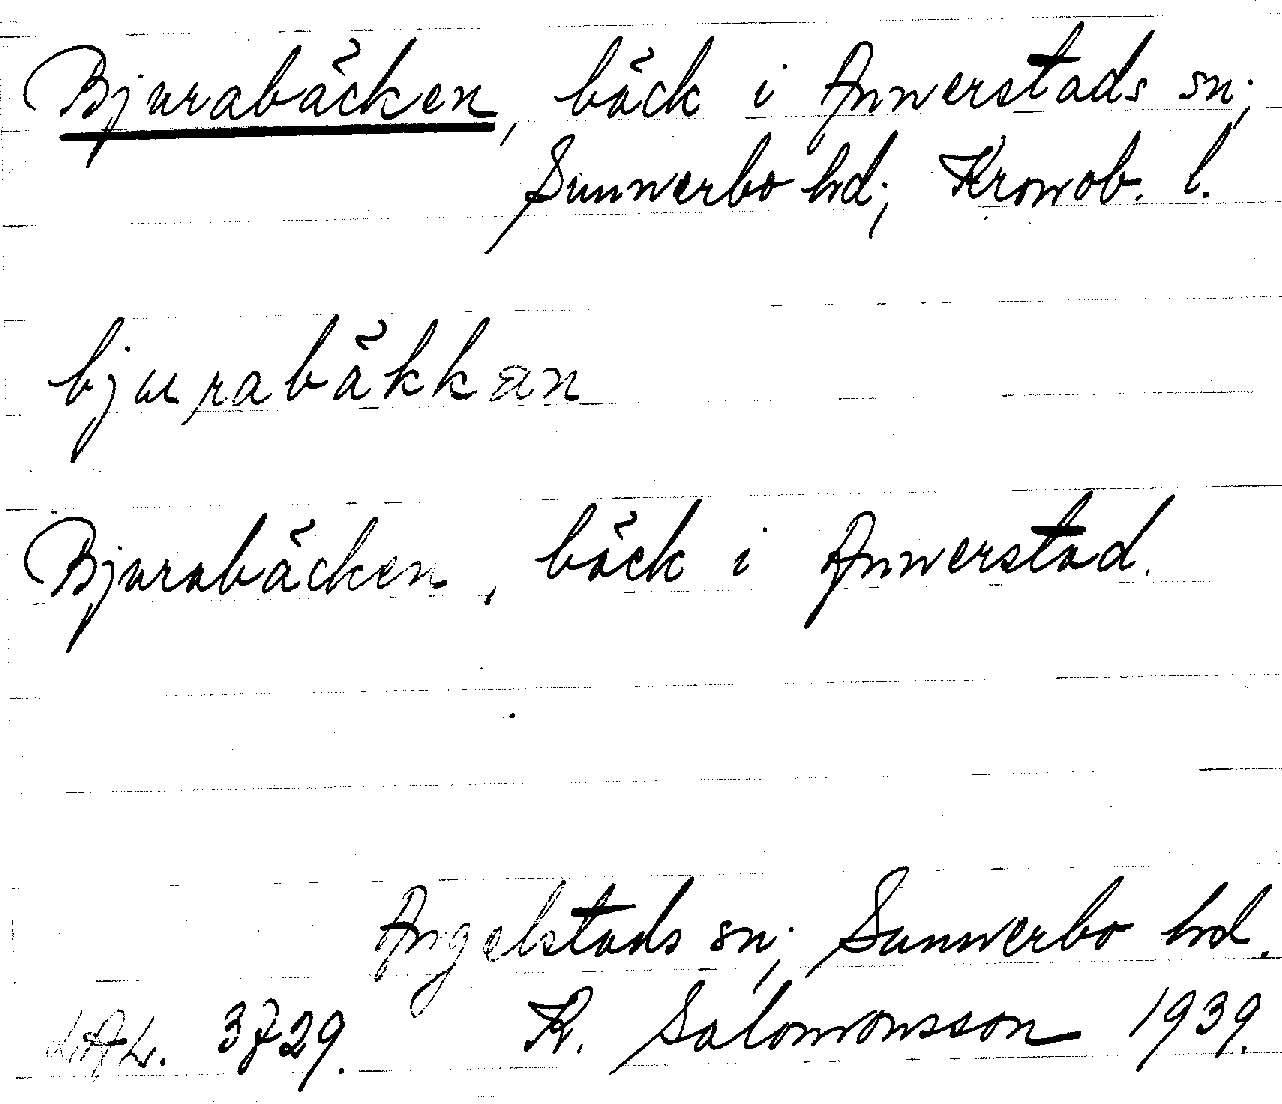 Bjurabäcken, bäck i Annerstads sn;
Sunnerbo hd; Kronob. l.
bjurabäkkan
Bjurabäcken, bäck i Annerstad.
Angelstads sn; Sunnerbo hd.
3729. K. Salomonsson 1939.